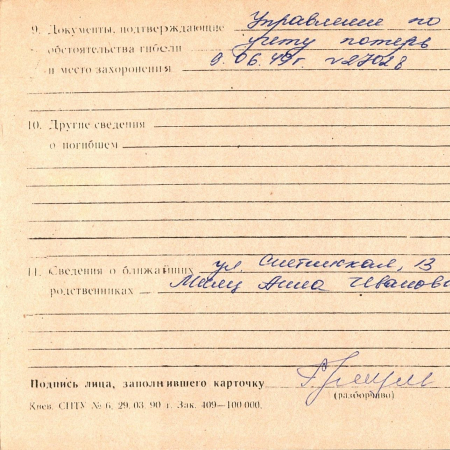 9. Документы, подтверждающие Управление по
обстоятельства гибели учету потерь
и место захоронения 9.06.49г №27028
10. Другие сведения
о погибшем
11. Сведения о ближайших ул. 13
родственниках Анна Иванов
Подпись лица, заполнившего карточку
(разборчиво)
Киев. СПТУ № 6, 29. 03. 90 г. Зак. 409—100 000.